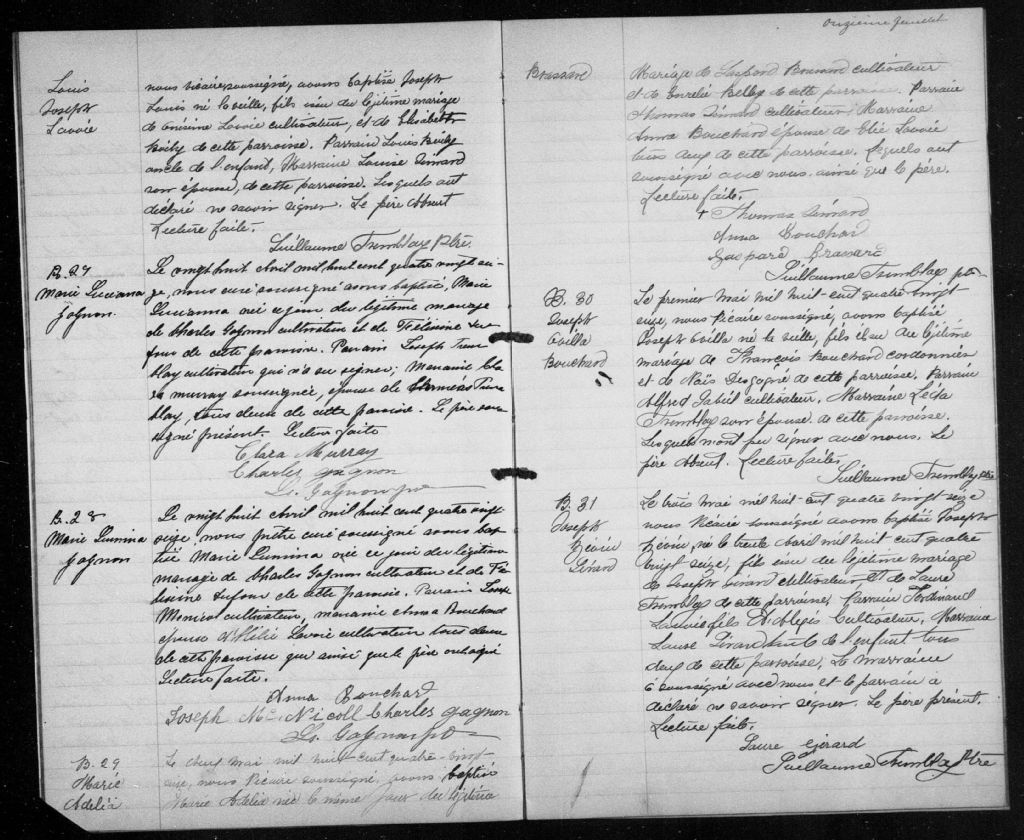 Louis
Joseph
Lavoie
nous Vicaire soussigné, avons baptisé Joseph
Louis né la veille, fils issu du légitime mariage
de Onésime Lavoie cultivateur, et de Elisabeth
Boily de cette parroisse. Parrain Louis Boily
oncle de l'enfant, Marraine Louise Simard
son épouse, de cette parroisse. Lesquels ont
déclaré ne savoir signer. Le père absent
Lecture faite.
Guillaume Tremblay Ptre
B. 27
Marie Lucienna
Gagnon.
Le vingt huit Avril mil huit cent quatre vingt sei-
ze, nous curé soussigné avons baptisé, Marie
née ce jour du légitime mariage
de Charles Gagnon cultivateur et de
de cette paroisse. Parrain Joseph Trem
blay cultivateur qui n'a su signer; marraine Cla
ra Murray soussignée, épouse de Trem
blay, tous deux de cette paroisse. Le père sous
signé présent. Lecture faite
Clara Murray
Charles gagnon
Ls. Gagnon ptre
B. 28
Marie Lumina
Gagnon
Le vingt huit Avril mil huit cent quatre vingt
seize nous prêtre curé soussigné avons bap
tisé Marie Lumina née ce jour du légitime
mariage de Charles Gagnon cultivateur et de
de cette paroisse. Parrain
cultivateur, marraine Anna Bouchard
épouse d'Elie Lavoie cultivateur tous deux
de cette paroisse qui ainsi que le père ont signé
Lecture faite.
Anna Bouchard
Joseph McNicoll Charles gagnon
Ls. Gagnon ptre
B. 29
Marie
Adelia
Le deux mai mil huit-cent quatre-vingt
seize, nous Vicaire soussigné, avons baptisé
Marie Adelia née le même jour du légitime
Onzième feuillet
Brassard
Mariage de Gaspard Brassard cultivateur
et de de cette parroisse. Parrain
Thomas Simard cultivateur, Marraine
Anna Bouchard épouse de Elie Lavoie
tous deux de cette parroisse. Lesquels ont
soussigné avec nous ainsi que le père.
Lecture faite.
+ Thomas Simard
Anna Bouchard
Gaspard Brassard
Guillaume Tremblay ptre
B. 30
Joseph
Bouchard
Le premier mai mil huit-cent quatre-vingt
seize, nous Vicaire soussigné, avons baptisé
Joseph né la veille, fils issu du légitime
mariage de François Bouchard cordonnier
et de Naïs Desgagné de cette parroisse. Parrain
Alfred cultivateur. Marraine Léda
Tremblay son épouse de cette parroisse.
Lesquels n'ont pu signer avec nous. Le
père absent. Lecture faite
Guillaume Tremblay ptre
B. 31
Joseph
Girard
Le trois mai mil huit-cent quatre vingt seize
nous Vicaire soussigné avons baptisé Joseph
né le trente Avril mil huit cent quatre
vingt seize, fils issu du légitime mariage
de Joseph Girard cultivateur et de Laure
Tremblay de cette parroisse, Parrain Ferdinand
Lavoie fils d'Alexis Cultivateur, Marraine
Laure Girard tante de l'enfant tous
deux de cette parroisse, La marraine
a soussigné avec nous et le parrain a
déclaré ne savoir signer. Le père présent.
Lecture faite.
Laure Girard
Guillaume Tremblay Ptre